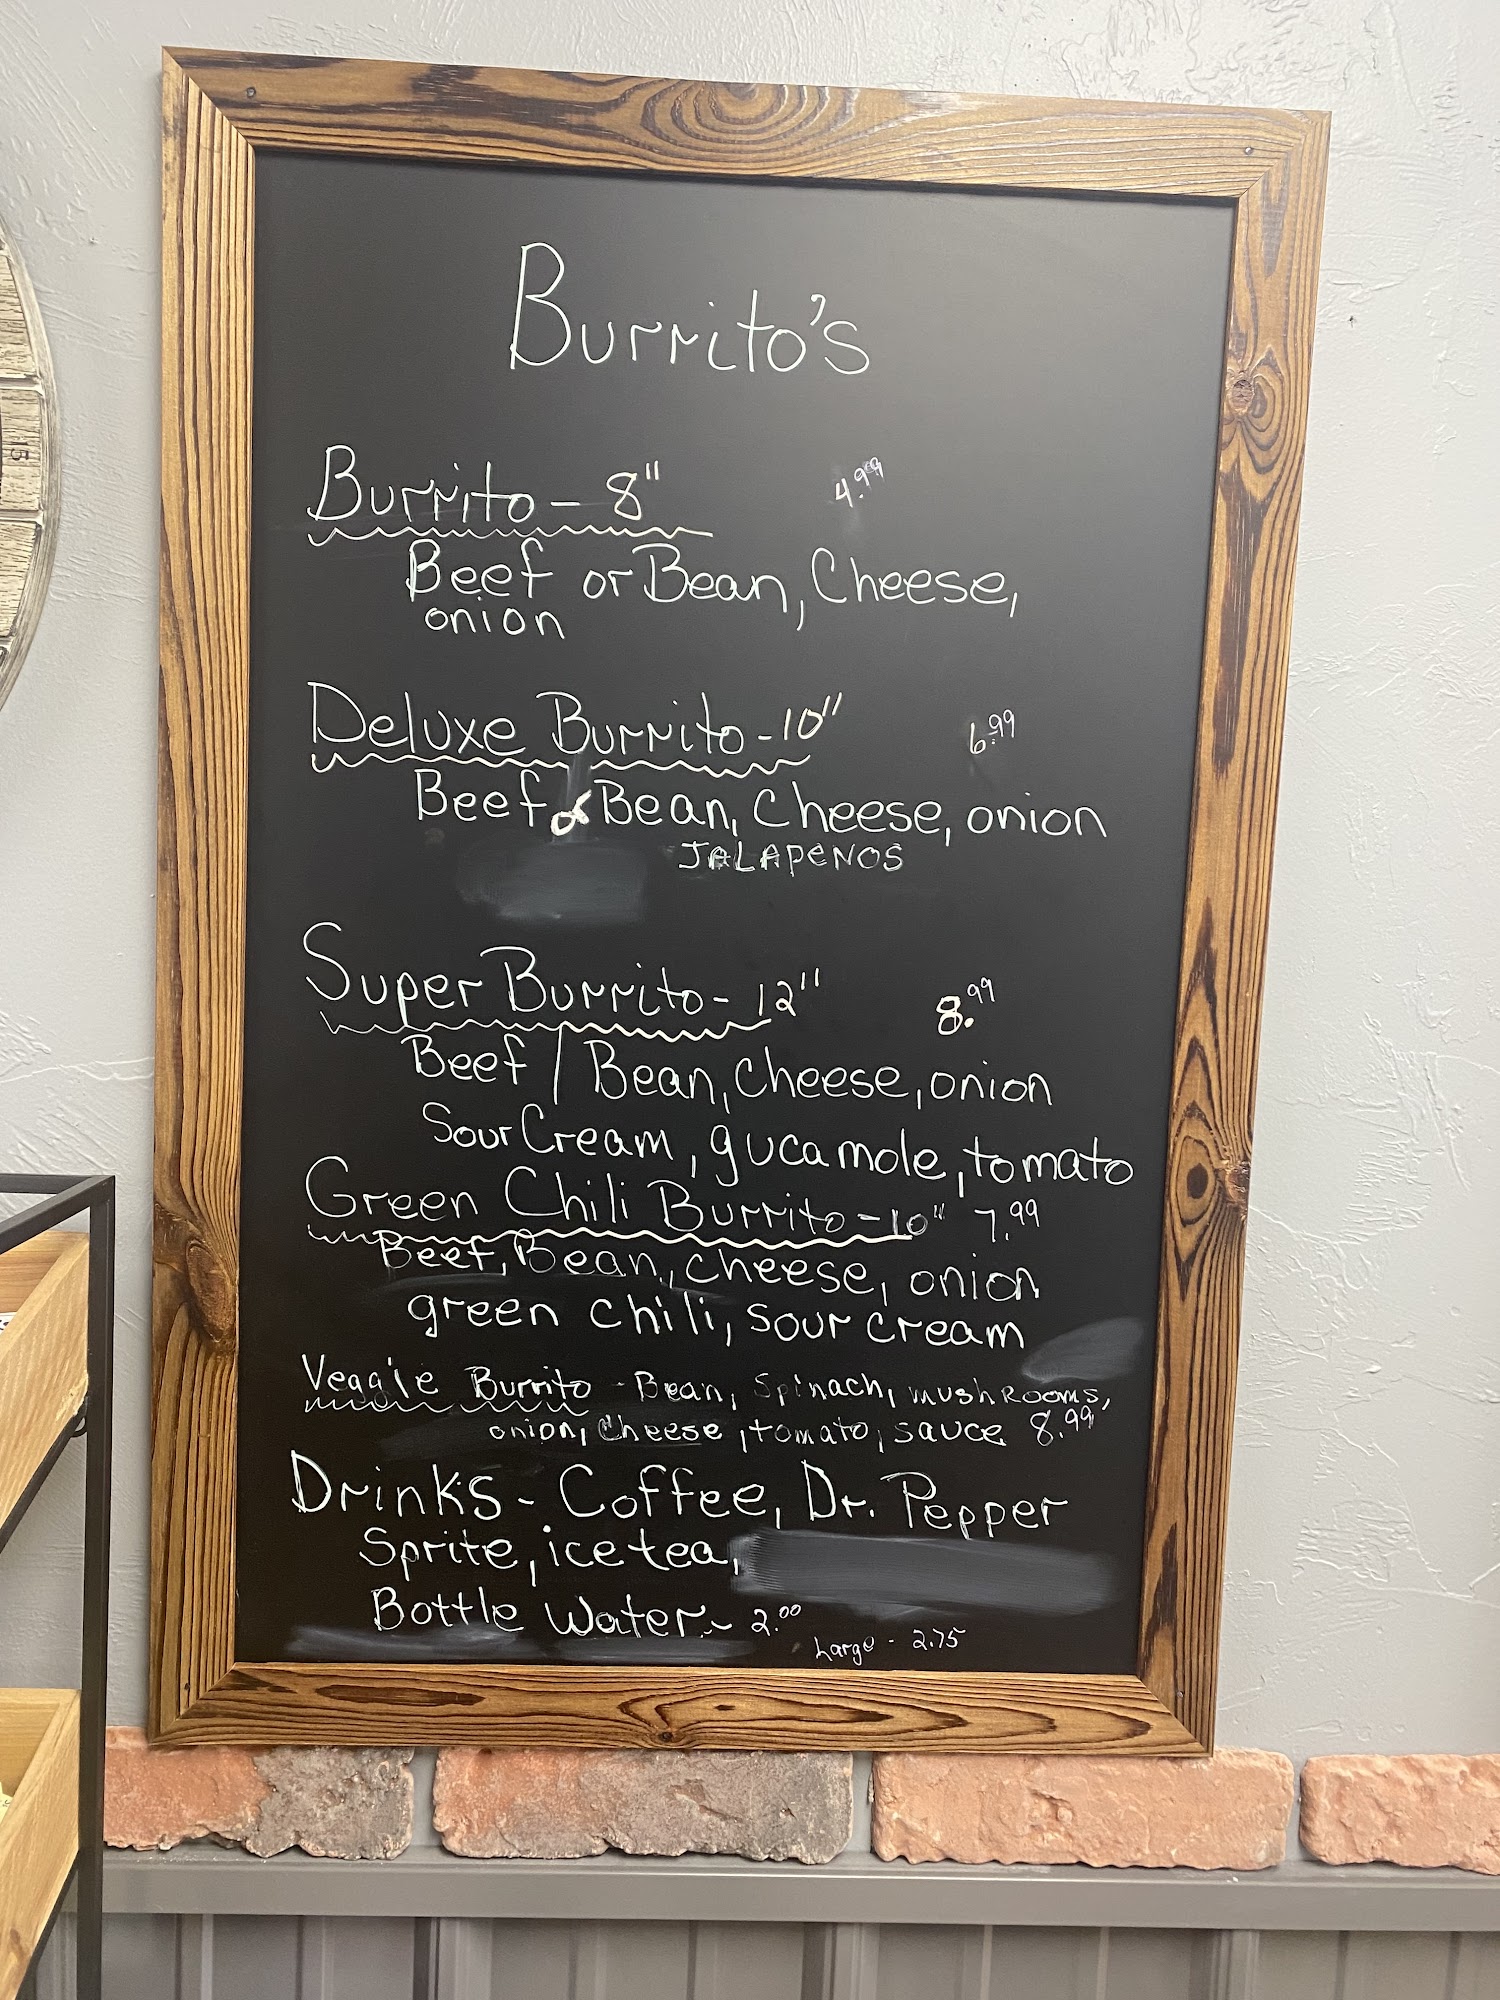 Burrito's
Burrito - 8" 4.99
Beef or Bean, Cheese,
onion
Deluxe Burrito - 10" 6.99
Beef or Bean, Cheese, onion
JALAPENOS
Super Burrito - 12" 8.99
Beef / Bean, Cheese, onion
Sour Cream, gucamole, tomato
Green Chili Burrito - 10" 7.99
Beef, Bean, cheese, onion
green chili, sour cream
Veggie Burrito - Bean, Spinach, mushRooms,
onion, Cheese, tomato, sauce 8.99
Drinks - Coffee, Dr. Pepper
Sprite, ice tea,
Bottle Water - 2.00
Large - 2.75
15